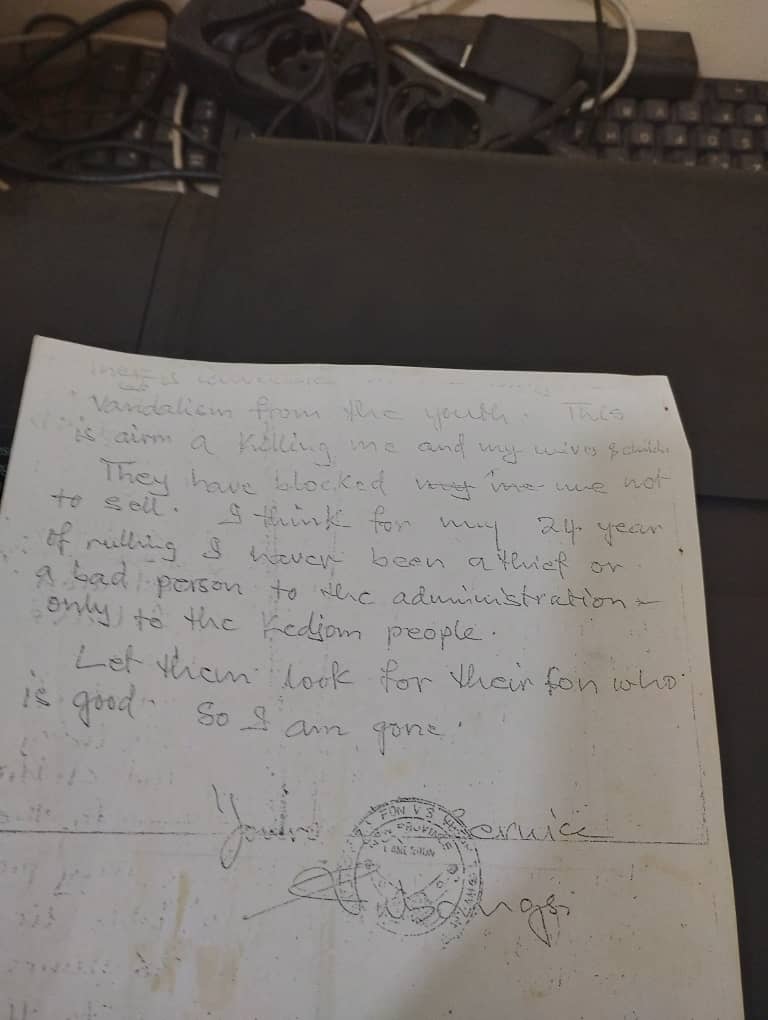 vandalism from the youth. This
is airm a killing me and my wives &
They have blocked me not
to sell. I think for my 24 year
of rulling I never been a thief or
a bad person to the administration -
only to the Kedjom people.
Let them look for their fon who
is good. So I am gone.
Yours Service
FON V.S.
PROVINCE